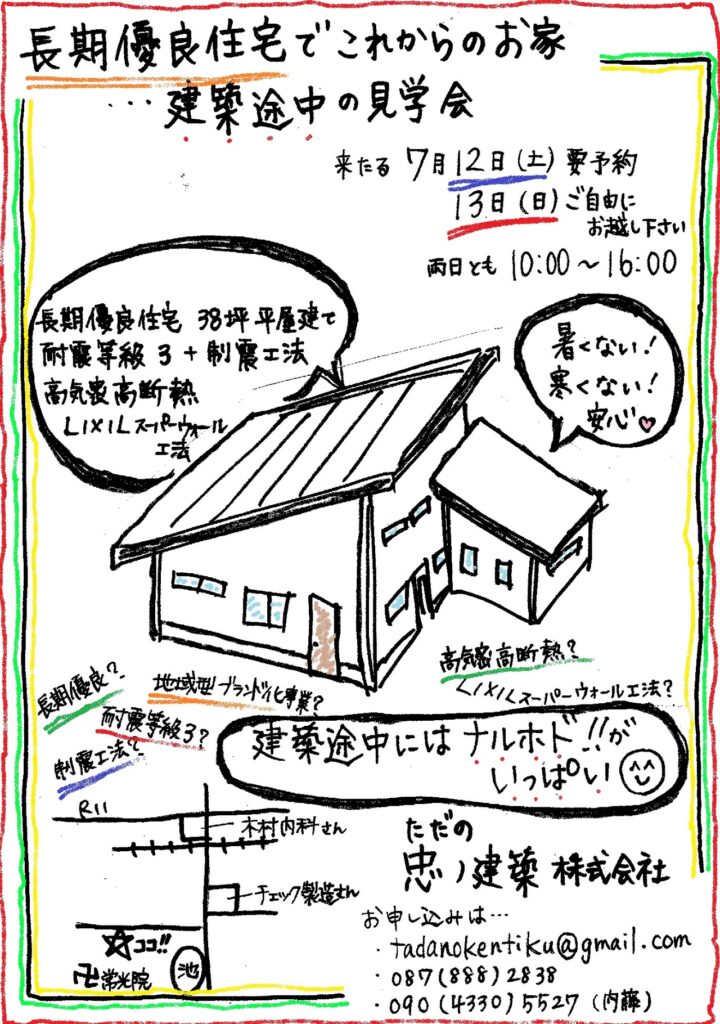 長期優良住宅でこれからのお家
…建築途中の見学会
来たる 7月12日(土) 要予約
13日(日) ご自由に
お越し下さい
両日とも 10:00〜16:00
長期優良住宅 38坪平屋建て
耐震等級3+制震工法
高気密高断熱
LIXILスーパーウォール
工法
暑くない!
寒くない!
安心♡
高気密高断熱?
LIXILスーパーウォール工法?
長期優良?
地域型ブランド化事業?
耐震等級3?
制震工法?
建築途中にはナルホド!!が
いっぱい
R11
木村内科さん
チェック製造さん
☆ココ!!
卍常光院
池
ただの
忠ノ建築 株式会社
お申し込みは…
・tadanokentiku@gmail.com
・087(888)2838
・090(4330)5527(内藤)